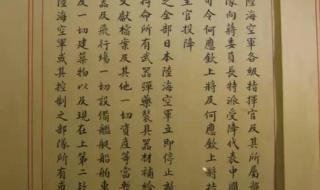 陸海空軍各級指揮官及其所屬
隊向蔣委員長特派受降代表中國
司令何應欽上將及何應欽上將
主官投降
之全部日本陸海空軍立即停止敵
待命所有武器彈藥裝具器材補給
文獻檔案及其他一切資產等當暫
器及飛行場一切設備艦艇船舶車
及一切建築物以及現在上第二
陸海空軍或其控制之部隊所有